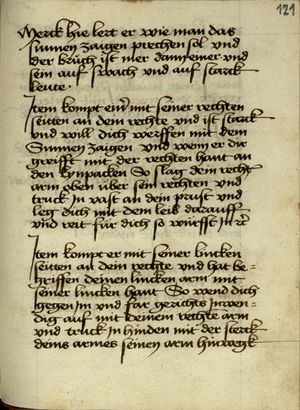 121
Merck hie lert er wie man das
sunnen zaigen prechen sol vnd
der bauch ist mer dann einer vnd
sein auf swach vnd auf starck
leute.
Item kompt einer mit seiner rechten
seitten an dein rechte vnd ist starck
vnd will dich werffen mit dem
Sunnen zaigen vnd wenn er dir
greifft mit der rechten hant an
den kynpacken So slag dein recht
arm oben über sein rechten vnd
truck in vast an dein prust vnd
leg dich mit dem leib darauff
vnd reit für dich so würfst in
Item kompt er mit seiner lincken
seitten an dein rechte vnd hat be-
griffen deinen lincken arm mit
seiner lincken hant So wend dich
gegen Im vnd far gerichts Inwen-
dig auf mit deinem rechte arm
vnd truck In hinden mit der sterck
deins armes seinen arm hinwegk